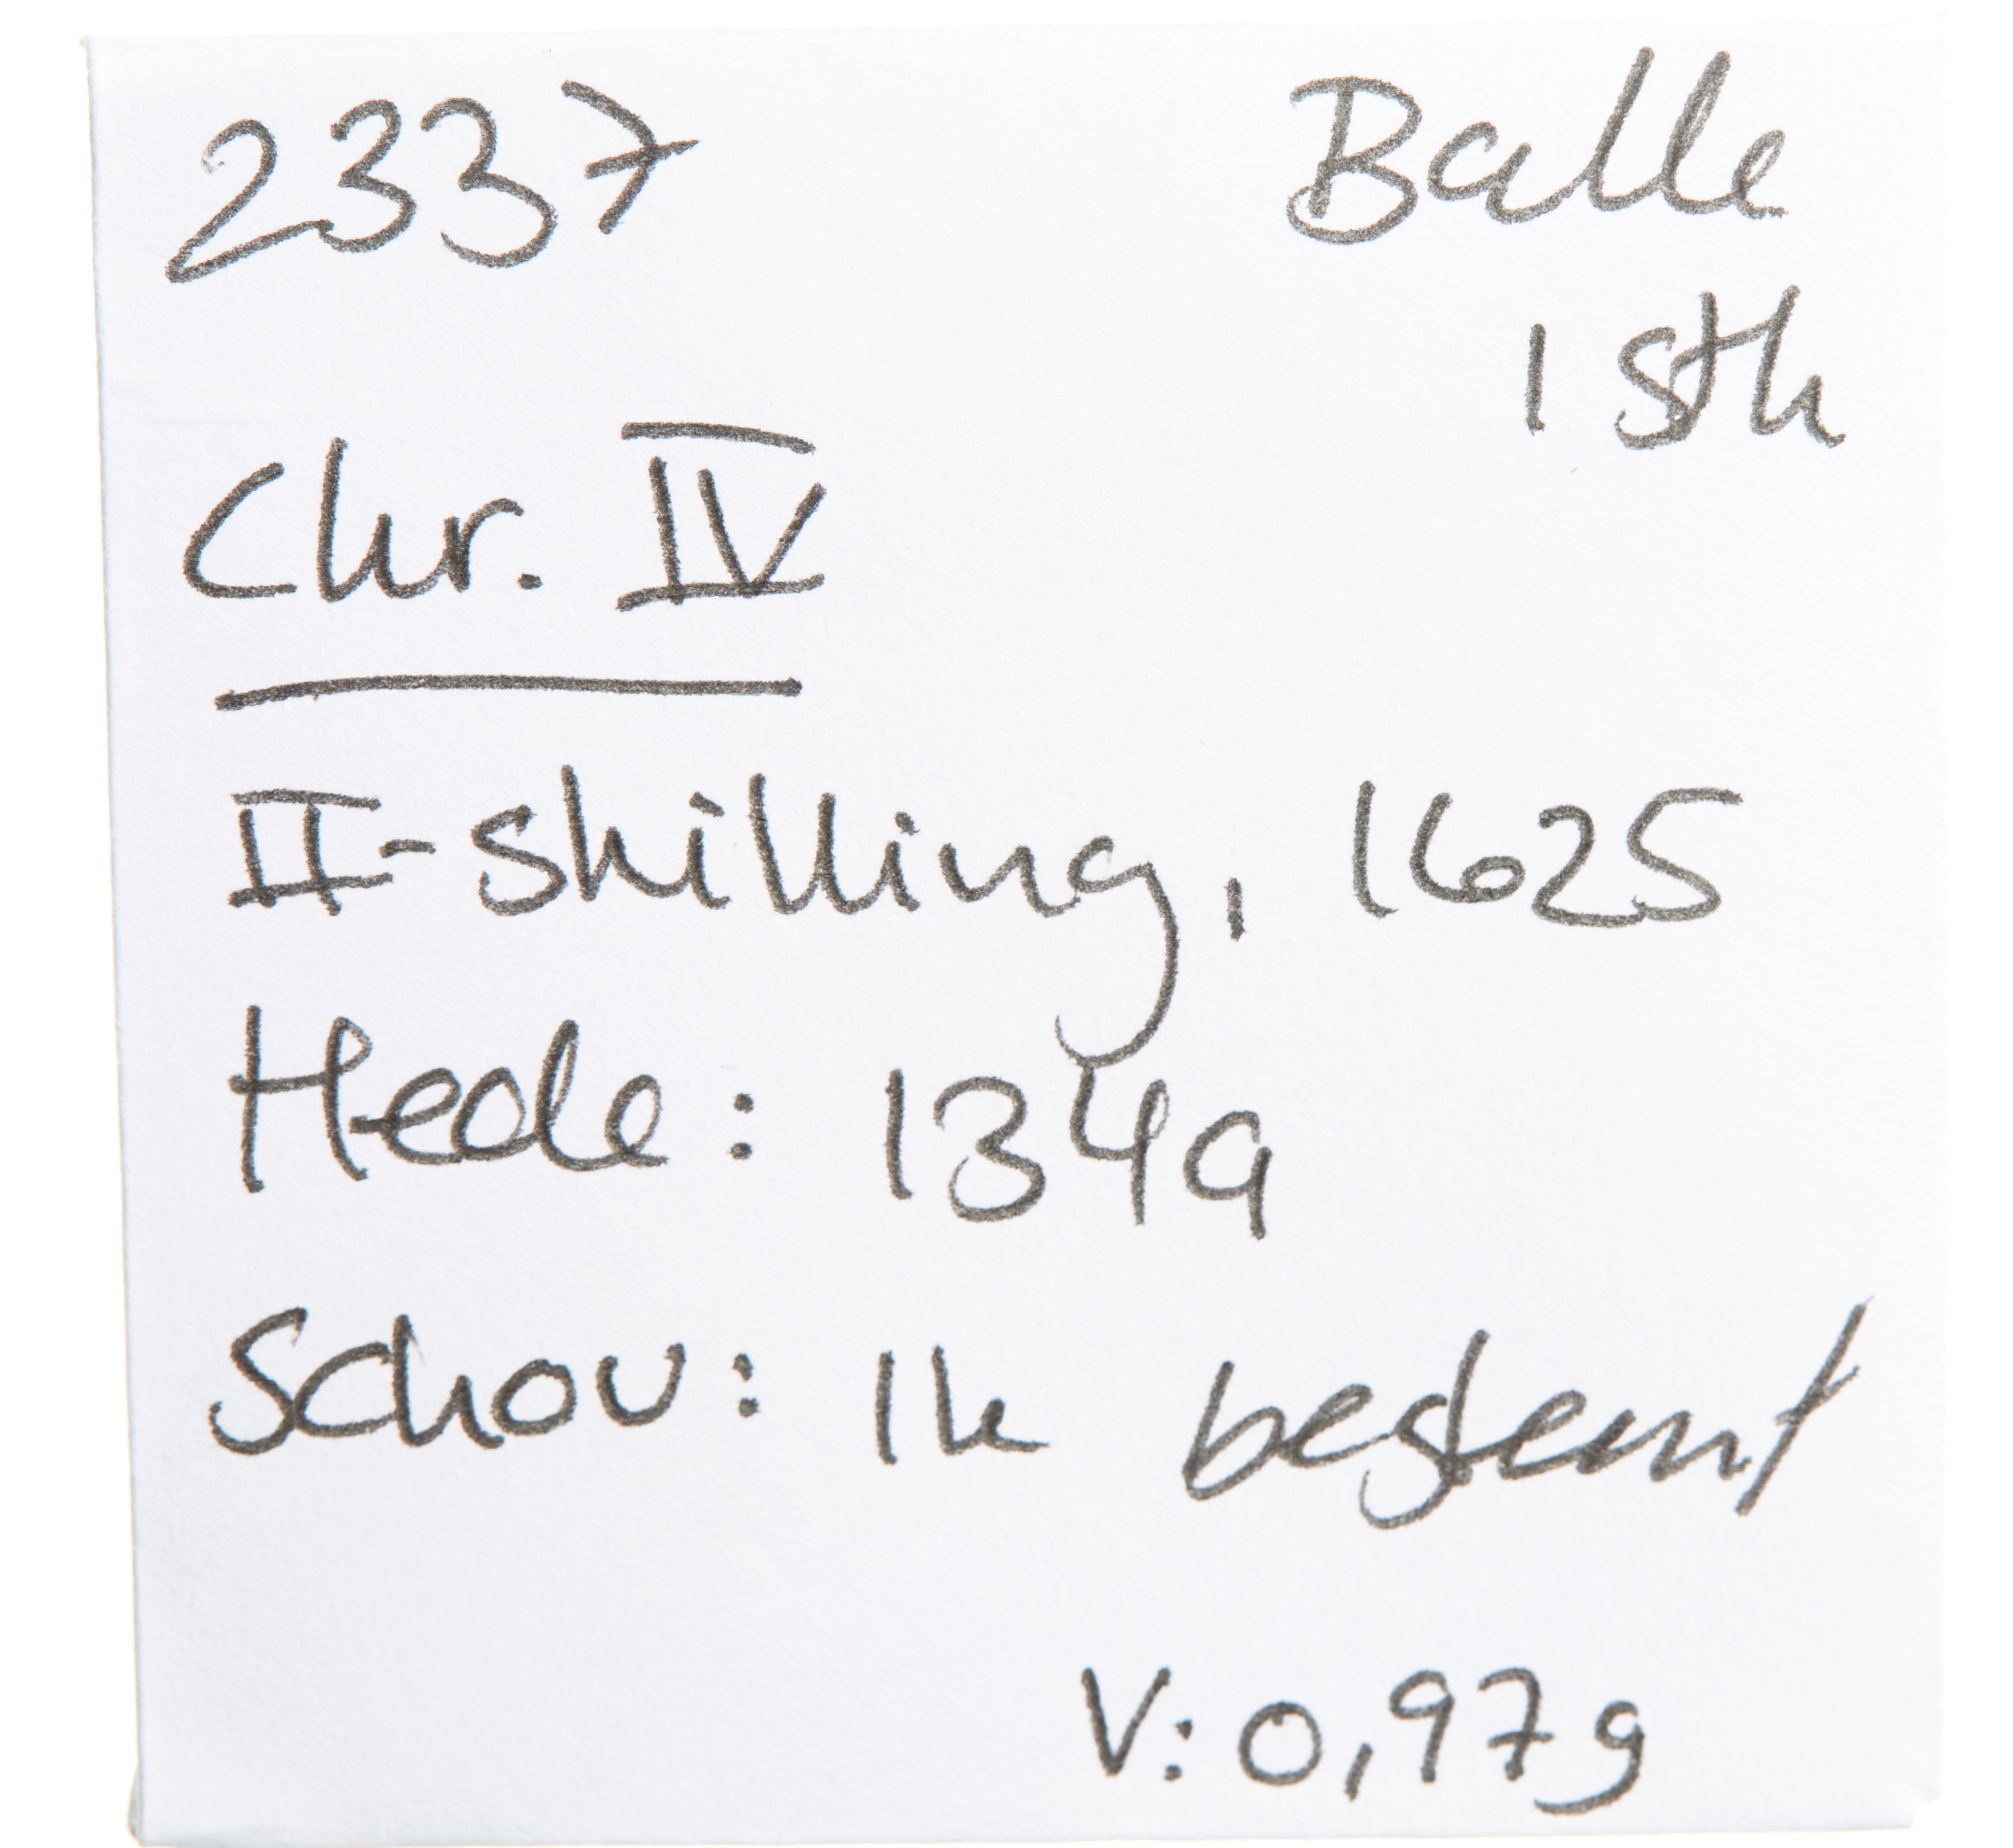 2337
Balle
1 stk
Chr. IV
II-skilling, 1625
Hede: 134a
Schou: Ik bestemt
V: 0,97g